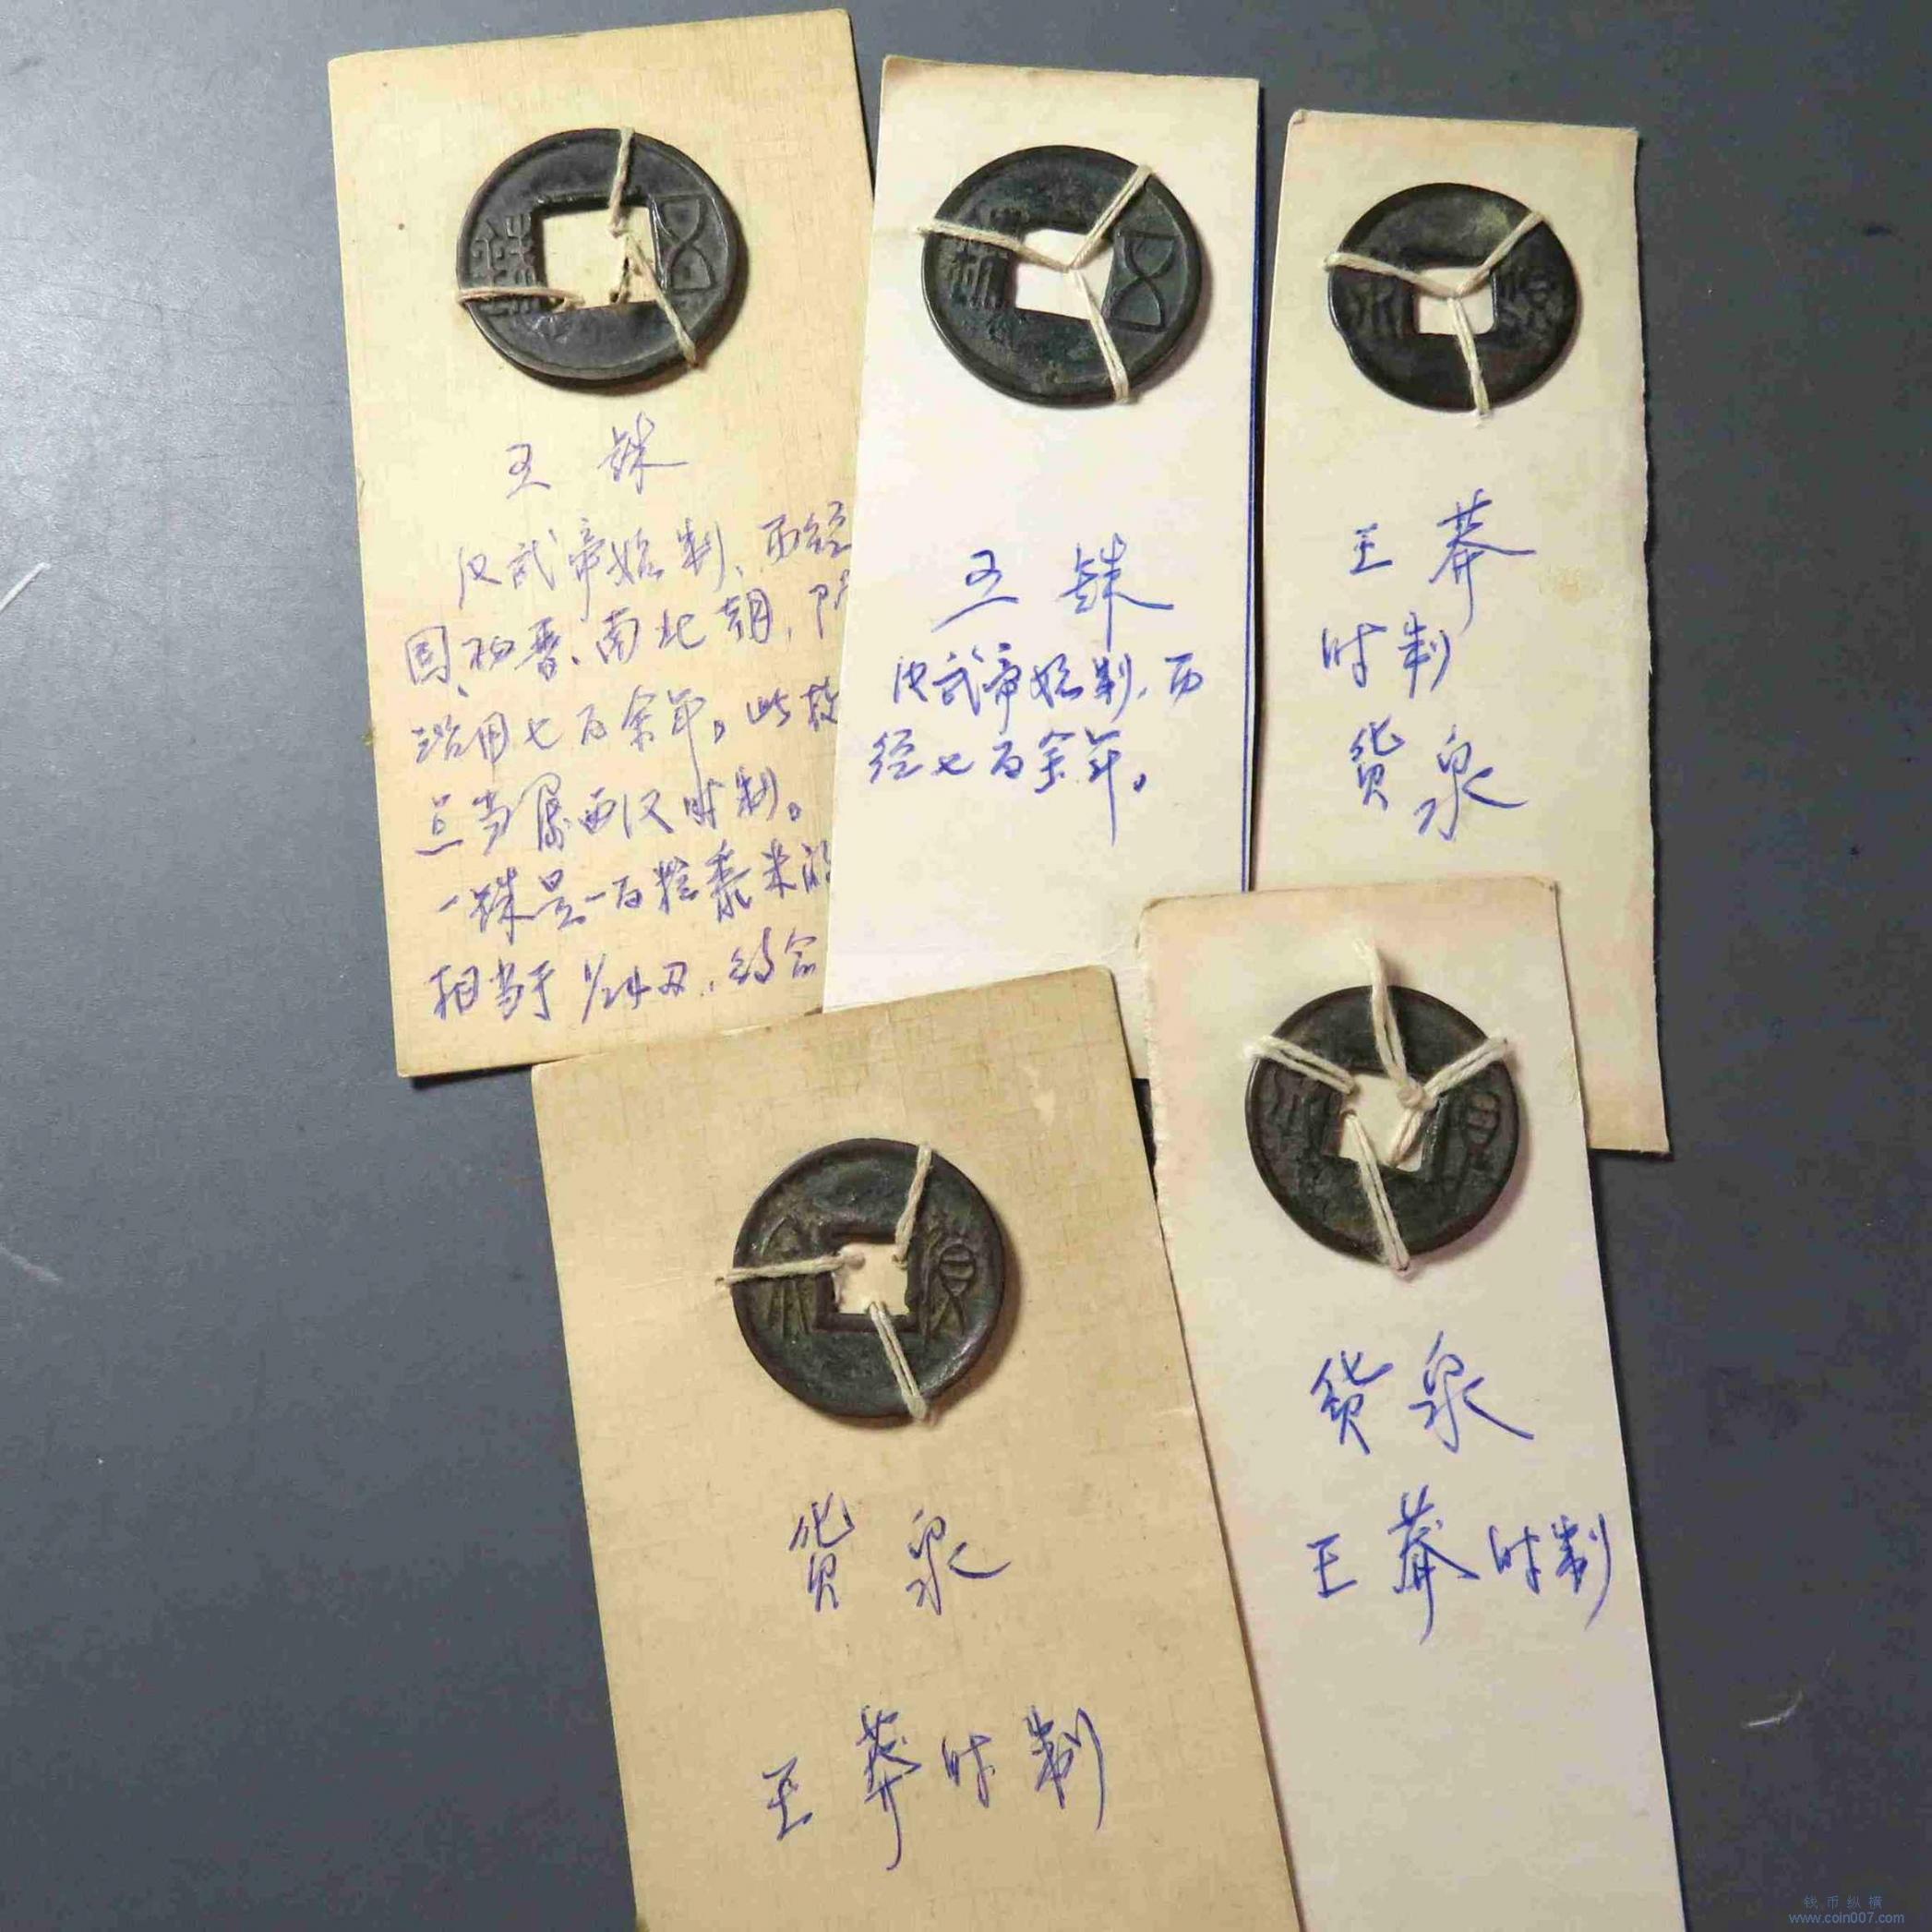 五銖
五 铢
汉武帝始制、历经
国、两晋、南北朝、隋
沿用七百余年。此枚
应当属西汉时制。
一铢是一百粒黍米的
相当于1/24两.,约合
五銖
五 铢
汉武帝始制、历
经七百余年。
貨泉
王莽
时制
货泉
貨泉
货泉
王莽时制
貨泉
货泉
王莽时制
钱币纵横
www.coin007.com